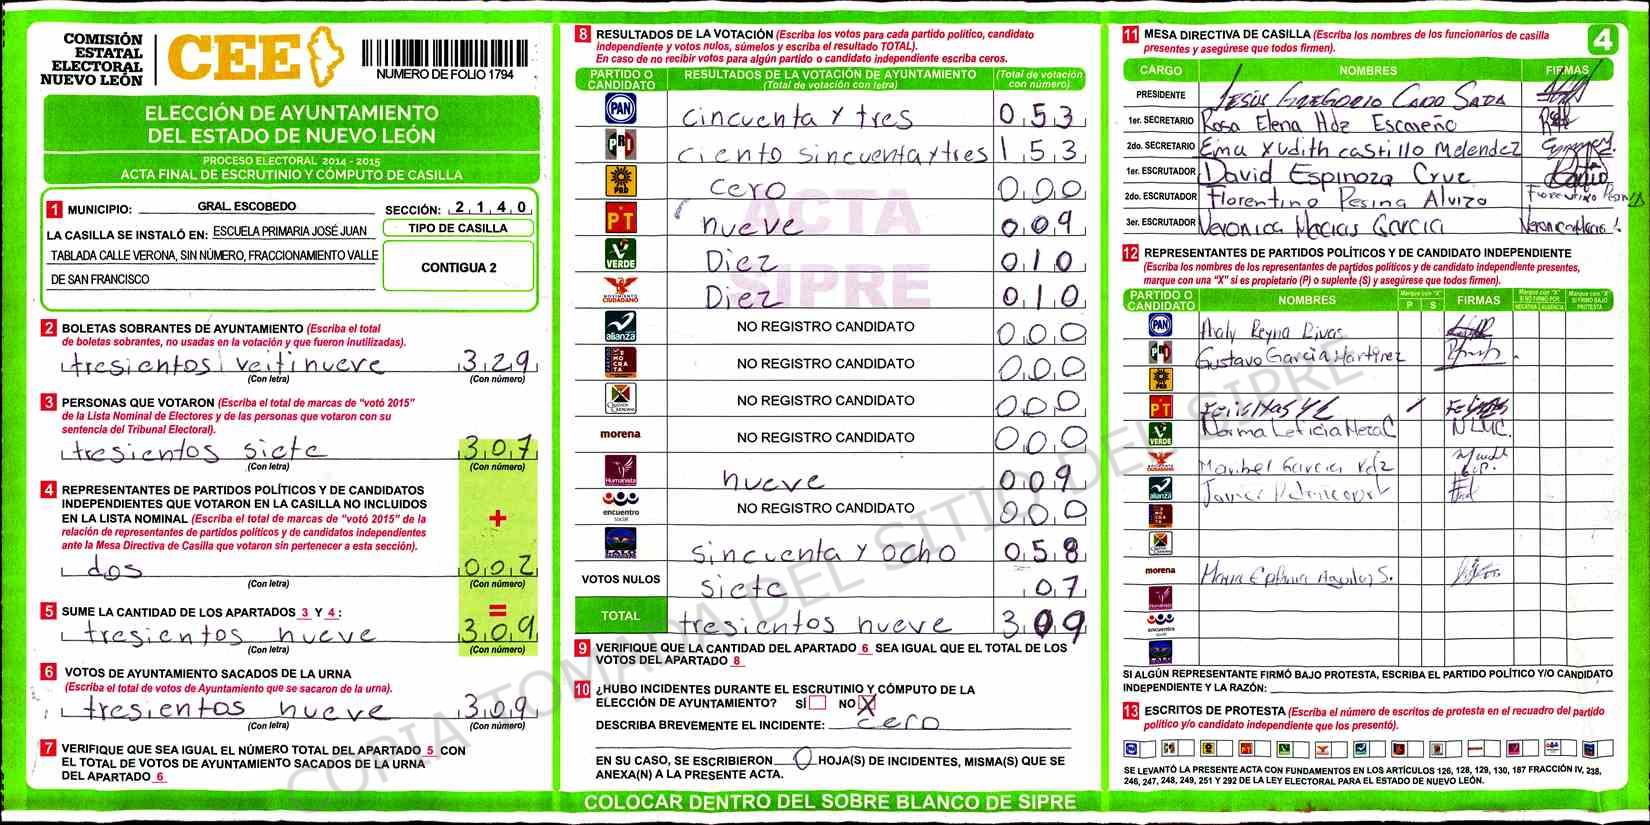 COMISIÓN
ESTATAL
ELECTORAL
NUEVO LEÓN
CEE
NUMERO DE FOLIO 1794
ELECCIÓN DE AYUNTAMIENTO
DEL ESTADO DE NUEVO LEÓN
PROCESO ELECTORAL 2014 - 2015
ACTA FINAL DE ESCRUTINIO Y CÓMPUTO DE CASILLA
1 MUNICIPIO: GRAL. ESCOBEDO SECCIÓN: 2 1 4 0
LA CASILLA SE INSTALÓ EN: ESCUELA PRIMARIA JOSÉ JUAN
TABLADA CALLE VERONA, SIN NÚMERO, FRACCIONAMIENTO VALLE
DE SAN FRANCISCO
TIPO DE CASILLA
CONTIGUA 2
2 BOLETAS SOBRANTES DE AYUNTAMIENTO (Escriba el total
de boletas sobrantes, no usadas en la votación y que fueron inutilizadas).
tresientos veitinueve 329
(Con letra) (Con número)
3 PERSONAS QUE VOTARON (Escriba el total de marcas de "votó 2015"
de la Lista Nominal de Electores y de las personas que votaron con su
sentencia del Tribunal Electoral).
tresientos siete 307
(Con letra) (Con número)
4 REPRESENTANTES DE PARTIDOS POLÍTICOS Y DE CANDIDATOS
INDEPENDIENTES QUE VOTARON EN LA CASILLA NO INCLUIDOS
EN LA LISTA NOMINAL (Escriba el total de marcas de "votó 2015" de la
relación de representantes de partidos políticos y de candidatos independientes
ante la Mesa Directiva de Casilla que votaron sin pertenecer a esta sección).
+
dos 002
(Con letra) (Con número)
5 SUME LA CANTIDAD DE LOS APARTADOS 3 Y 4: =
tresientos nueve 309
(Con letra) (Con número)
6 VOTOS DE AYUNTAMIENTO SACADOS DE LA URNA
(Escriba el total de votos de Ayuntamiento que se sacaron de la urna).
tresientos nueve 309
(Con letra) (Con número)
7 VERIFIQUE QUE SEA IGUAL EL NÚMERO TOTAL DEL APARTADO 5 CON
EL TOTAL DE VOTOS DE AYUNTAMIENTO SACADOS DE LA URNA
DEL APARTADO 6
8 RESULTADOS DE LA VOTACIÓN (Escriba los votos para cada partido político, candidato
independiente y votos nulos, súmelos y escriba el resultado TOTAL).
En caso de no recibir votos para algún partido o candidato independiente escriba ceros.
PARTIDO O CANDIDATO RESULTADOS DE LA VOTACIÓN DE AYUNTAMIENTO (Total de votación con letra) (Total de votación con número)
PAN cincuenta y tres 053
PRD ciento sincuenta y tres 153
PRD cero 000
PT nueve 009
VERDE Diez 010
MOVIMIENTO CIUDADANO Diez 010
alianza NO REGISTRO CANDIDATO 000
NO REGISTRO CANDIDATO 000
NO REGISTRO CANDIDATO 000
morena NO REGISTRO CANDIDATO 000
Humanista nueve 009
encuentro social NO REGISTRO CANDIDATO 000
sincuenta y ocho 058
VOTOS NULOS siete 07
TOTAL tresientos nueve 309
ACTA
SIPRE
9 VERIFIQUE QUE LA CANTIDAD DEL APARTADO 6 SEA IGUAL QUE EL TOTAL DE LOS
VOTOS DEL APARTADO 8
10 ¿HUBO INCIDENTES DURANTE EL ESCRUTINIO Y CÓMPUTO DE LA
ELECCIÓN DE AYUNTAMIENTO? SÍ NO X
DESCRIBA BREVEMENTE EL INCIDENTE: cero
EN SU CASO, SE ESCRIBIERON 0 HOJA(S) DE INCIDENTES, MISMA(S) QUE SE
ANEXA(N) A LA PRESENTE ACTA.
COLOCAR DENTRO DEL SOBRE BLANCO DE SIPRE
11 MESA DIRECTIVA DE CASILLA (Escriba los nombres de los funcionarios de casilla
presentes y asegúrese que todos firmen).
4
CARGO NOMBRES FIRMAS
PRESIDENTE JESÚS GREGORIO CANO SADA
1er. SECRETARIO Rosa Elena Hdz Escareño
2do. SECRETARIO Ema Xudith castillo Melendez
1er. ESCRUTADOR David Espinoza Cruz
2do. ESCRUTADOR Florentino Pesina Alvizo
3er. ESCRUTADOR Veronica Macias Garcia
12 REPRESENTANTES DE PARTIDOS POLÍTICOS Y DE CANDIDATO INDEPENDIENTE
(Escriba los nombres de los representantes de partidos políticos y de candidato independiente presentes,
marque con una "X" si es propietario (P) o suplente (S) y asegúrese que todos firmen).
PARTIDO O CANDIDATO NOMBRES Marque con "X" P S FIRMAS Marque con "X" SI NO FIRMÓ POR NEGATIVA AUSENCIA Marque con "X" SI FIRMÓ BAJO PROTESTA
PAN Reyna Rivas
Gustavo Garcia Martinez
PRD
PT
VERDE Norma Leticia N.L.M.C.
CIUDADANO Maribel Garcia
alianza Javier
morena Maria Aguilar S.
Humanista
encuentro social
SI ALGÚN REPRESENTANTE FIRMÓ BAJO PROTESTA, ESCRIBA EL PARTIDO POLÍTICO Y/O CANDIDATO
INDEPENDIENTE Y LA RAZÓN:
13 ESCRITOS DE PROTESTA (Escriba el número de escritos de protesta en el recuadro del partido
político y/o candidato independiente que los presentó).
SE LEVANTÓ LA PRESENTE ACTA CON FUNDAMENTOS EN LOS ARTÍCULOS 126, 128, 129, 130, 187 FRACCIÓN IV, 238,
246, 247, 248, 249, 251 Y 292 DE LA LEY ELECTORAL PARA EL ESTADO DE NUEVO LEÓN.
COPIA TOMADA DEL SITIO DEL SIPRE